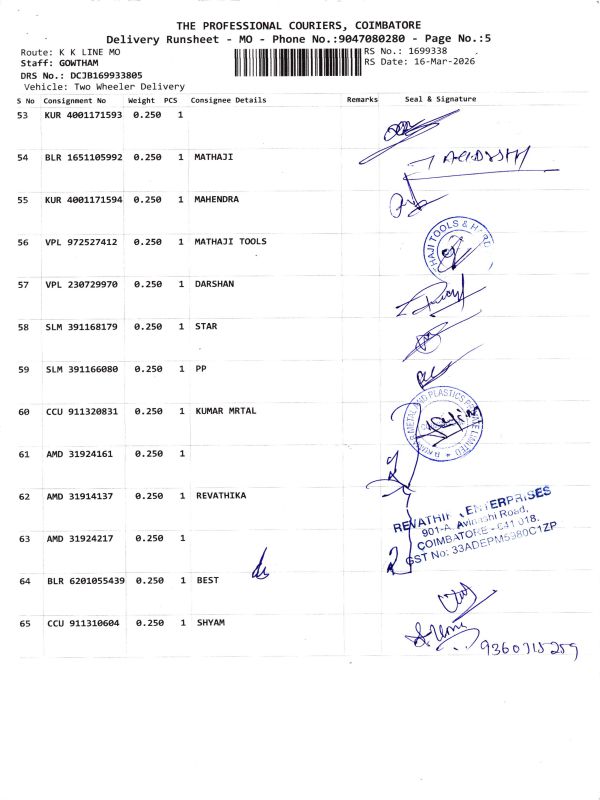 THE PROFESSIONAL COURIERS, COIMBATORE
Delivery Runsheet - MO - Phone No.:9047080280 - Page No.:5
Route: K K LINE MO
RS No.: 1699338
Staff: GOWTHAM
RS Date: 16-Mar-2026
DRS No.: DCJB169933805
Vehicle: Two Wheeler Delivery
S No Consignment No Weight PCS Consignee Details Remarks Seal & Signature
53 KUR 4001171593 0.250 1
54 BLR 1651105992 0.250 1 MATHAJI
55 KUR 4001171594 0.250 1 MAHENDRA
56 VPL 972527412 0.250 1 MATHAJI TOOLS
HAJI TOOLS &
57 VPL 230729970 0.250 1 DARSHAN
58 SLM 391168179 0.250 1 STAR
59 SLM 391166080 0.250 1 PP
60 CCU 911320831 0.250 1 KUMAR MRTAL
METAL AND PLASTICS LIMITED
61 AMD 31924161 0.250 1
62 AMD 31914137 0.250 1 REVATHIKA
ENTERPRISES
901-A, Avinashi Road,
COIMBATORE - 641 018.
GST No: 33ADEPM5980C1ZP
63 AMD 31924217 0.250 1
64 BLR 6201055439 0.250 1 BEST
65 CCU 911310604 0.250 1 SHYAM
9360715259